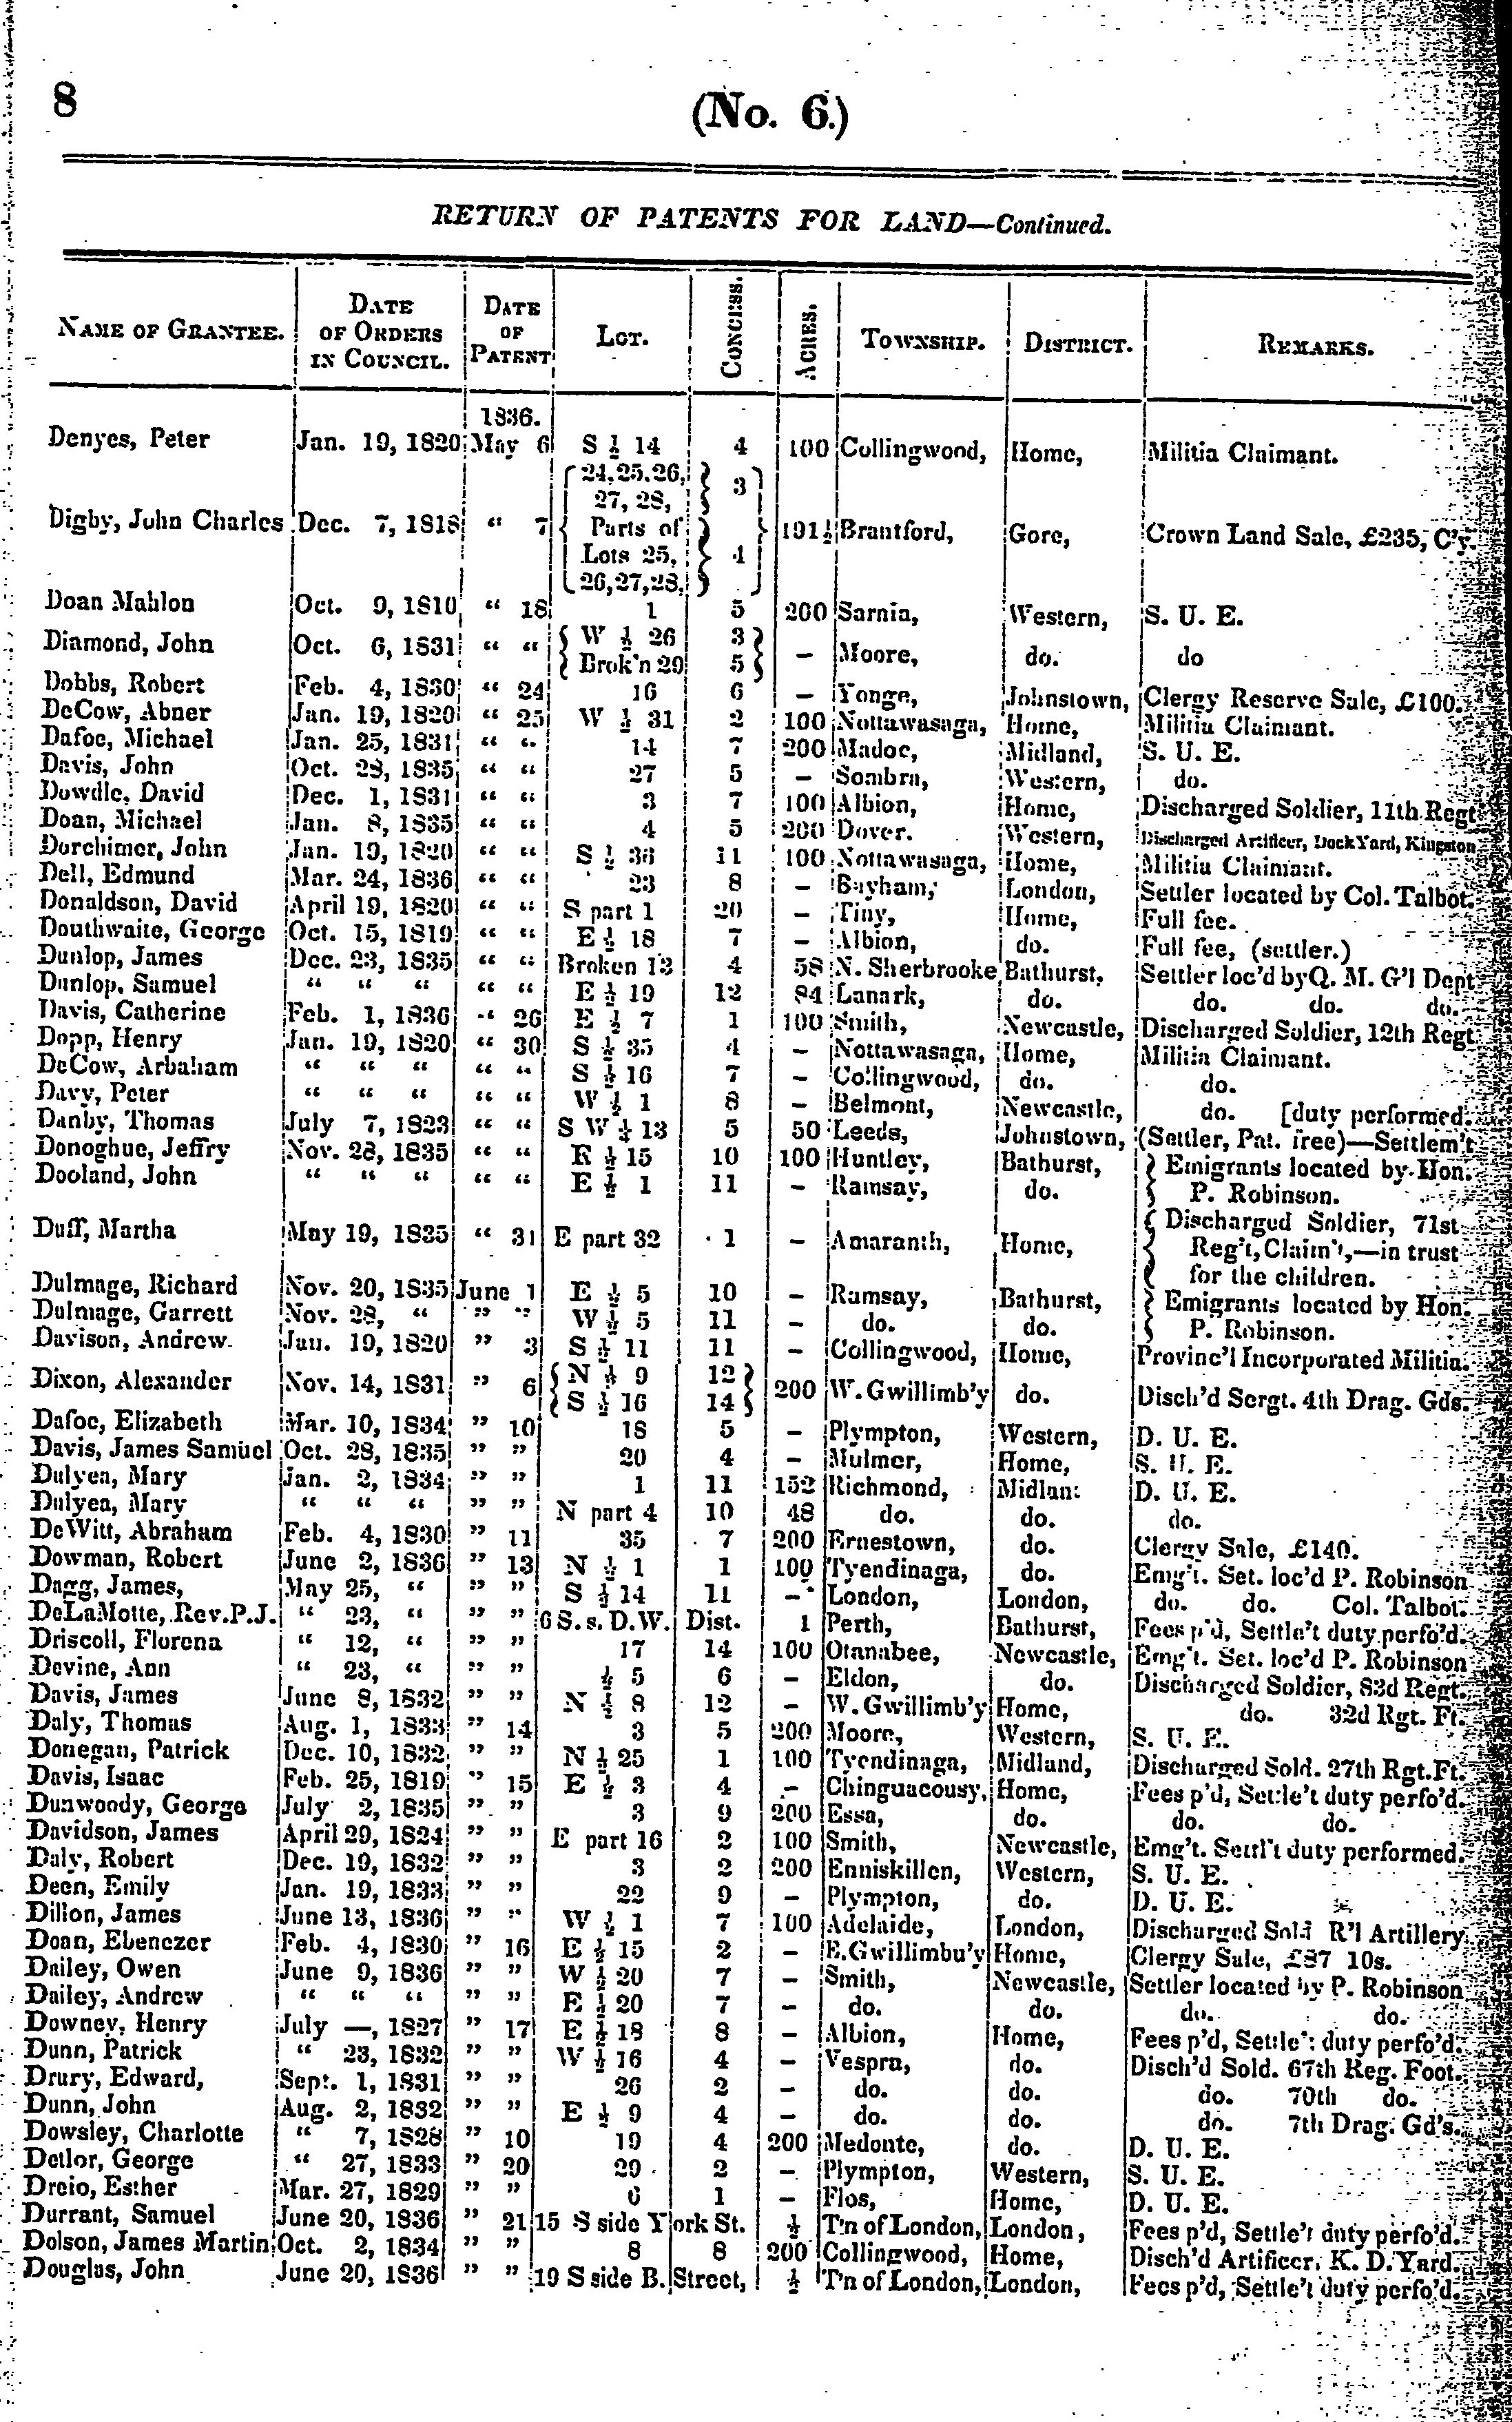 8
(No. 6.)
RETURN OF PATENTS FOR LAND—Continued.
NAME OF GRANTEE. DATE OF ORDERS IN COUNCIL. DATE OF PATENT LOT. CONCESS. ACRES. TOWNSHIP. DISTRICT. REMARKS.
1836.
Denyes, Peter Jan. 19, 1820 May 6 S ½ 14 4 100 Collingwood, Home, Militia Claimant.
Digby, John Charles Dec. 7, 1818 “ 7 24, 25, 26, 27, 28, 3 Parts of Lots 25, 26, 27, 28, 4 191½ Brantford, Gore, Crown Land Sale, £235, C'y.
Doan Mahlon Oct. 9, 1810 “ 18 1 5 200 Sarnia, Western, S. U. E.
Diamond, John Oct. 6, 1831 “ “ W ½ 26 3 Brok'n 29 5 — Moore, do. do
Dobbs, Robert Feb. 4, 1830 “ 24 16 6 — Yonge, Johnstown, Clergy Reserve Sale, £100.
DeCow, Abner Jan. 19, 1820 “ 25 W ½ 31 2 100 Nottawasaga, Home, Militia Claimant.
Dafoe, Michael Jan. 25, 1831 “ “ 14 7 200 Madoc, Midland, S. U. E.
Davis, John Oct. 28, 1835 “ “ 27 5 — Sombra, Western, do.
Dowdle, David Dec. 1, 1831 “ “ 3 7 100 Albion, Home, Discharged Soldier, 11th Regt
Doan, Michael Jan. 8, 1835 “ “ 4 5 200 Dover. Western, Discharged Artificer, Dock Yard, Kingston
Dorchimer, John Jan. 19, 1820 “ “ S ½ 36 11 100 Nottawasaga, Home, Militia Claimant.
Dell, Edmund Mar. 24, 1836 “ “ 23 8 — Bayham, London, Settler located by Col. Talbot.
Donaldson, David April 19, 1820 “ “ S part 1 20 — Tiny, Home, Full fee.
Douthwaite, George Oct. 15, 1819 “ “ E ½ 18 7 — Albion, do. Full fee, (settler.)
Dunlop, James Dec. 23, 1835 “ “ Broken 13 4 58 N. Sherbrooke Bathurst, Settler loc'd by Q. M. G'l Dept
Dunlop, Samuel “ “ “ “ “ E ½ 19 12 84 Lanark, do. do. do. do.
Davis, Catherine Feb. 1, 1836 “ 26 E ½ 7 1 100 Smith, Newcastle, Discharged Soldier, 12th Regt
Dopp, Henry Jan. 19, 1820 “ 30 S ½ 35 4 — Nottawasaga, Home, Militia Claimant.
DeCow, Arbaham “ “ “ “ “ S ½ 16 7 — Collingwood, do. do.
Davy, Peter “ “ “ “ “ W ½ 1 8 — Belmont, Newcastle, do. [duty performed.
Danby, Thomas July 7, 1823 “ “ S W ¼ 13 5 50 Leeds, Johnstown, (Settler, Pat. free)—Settlem't
Donoghue, Jeffry Nov. 28, 1835 “ “ E ½ 15 10 100 Huntley, Bathurst, Emigrants located by Hon.
Dooland, John “ “ “ “ “ E ½ 1 11 — Ramsay, do. P. Robinson.
Duff, Martha May 19, 1835 “ 31 E part 32 1 — Amaranth, Home, Discharged Soldier, 71st Reg't, Claim't,—in trust for the children.
Dulmage, Richard Nov. 20, 1835 June 1 E ½ 5 10 — Ramsay, Bathurst, Emigrants located by Hon.
Dulmage, Garrett Nov. 28, “ ” ” W ½ 5 11 — do. do. P. Robinson.
Davison, Andrew Jan. 19, 1820 ” 3 S ½ 11 11 — Collingwood, Home, Provinc'l Incorporated Militia.
Dixon, Alexander Nov. 14, 1831 ” 6 N ½ 9 12 S ½ 16 14 200 W. Gwillimb'y do. Disch'd Sergt. 4th Drag. Gds.
Dafoe, Elizabeth Mar. 10, 1834 ” 10 18 5 — Plympton, Western, D. U. E.
Davis, James Samuel Oct. 28, 1835 ” ” 20 4 — Mulmer, Home, S. U. E.
Dulyea, Mary Jan. 2, 1834 ” ” 1 11 152 Richmond, Midlan D. U. E.
Dulyea, Mary “ “ “ ” ” N part 4 10 48 do. do. do.
DeWitt, Abraham Feb. 4, 1830 ” 11 35 7 200 Ernestown, do. Clergy Sale, £140.
Dowman, Robert June 2, 1836 ” 13 N ½ 1 1 100 Tyendinaga, do. Emg't. Set. loc'd P. Robinson
Dagg, James, May 25, “ ” ” S ½ 14 11 — London, London, do. do. Col. Talbot.
DeLaMotte, Rev. P. J. “ 23, “ ” ” 6 S. s. D. W. Dist. 1 Perth, Bathurst, Fees p'd, Settle't duty perfo'd.
Driscoll, Florena “ 12, “ ” ” 17 14 100 Otanabee, Newcastle, Emg't. Set. loc'd P. Robinson
Devine, Ann “ 23, “ ” ” ½ 5 6 — Eldon, do. Discharged Soldier, 83d Regt.
Davis, James June 8, 1832 ” ” N ½ 8 12 — W. Gwillimb'y Home, do. 32d Rgt. Ft.
Daly, Thomas Aug. 1, 1833 ” 14 3 5 200 Moore, Western, S. U. E.
Donegan, Patrick Dec. 10, 1832 ” ” N ½ 25 1 100 Tyendinaga, Midland, Discharged Sold. 27th Rgt. Ft.
Davis, Isaac Feb. 25, 1819 ” 15 E ½ 3 4 — Chinguacousy, Home, Fees p'd, Settle't duty perfo'd.
Dunwoody, George July 2, 1835 ” ” 3 9 200 Essa, do. do. do.
Davidson, James April 29, 1824 ” ” E part 16 2 100 Smith, Newcastle, Emg't. Settl't duty performed.
Daly, Robert Dec. 19, 1832 ” ” 3 2 200 Enniskillen, Western, S. U. E.
Deen, Emily Jan. 19, 1833 ” ” 22 9 — Plympton, do. D. U. E.
Dillon, James June 13, 1836 ” ” W ½ 1 7 100 Adelaide, London, Discharged Sold R'l Artillery
Doan, Ebenezer Feb. 4, 1830 ” 16 E ½ 15 2 — E. Gwillimbu'y Home, Clergy Sale, £87 10s.
Dailey, Owen June 9, 1836 ” ” W ½ 20 7 — Smith, Newcastle, Settler located by P. Robinson
Dailey, Andrew “ “ “ ” ” E ½ 20 7 — do. do. do. do.
Downey, Henry July —, 1827 ” 17 E ½ 18 8 — Albion, Home, Fees p'd, Settle't duty perfo'd.
Dunn, Patrick “ 23, 1832 ” ” W ½ 16 4 — Vespra, do. Disch'd Sold. 67th Reg. Foot.
Drury, Edward, Sept. 1, 1831 ” ” 26 2 — do. do. do. 70th do.
Dunn, John Aug. 2, 1832 ” ” E ½ 9 4 — do. do. do. 7th Drag. Gd's.
Dowsley, Charlotte “ 7, 1828 ” 10 19 4 200 Medonte, do. D. U. E.
Detlor, George “ 27, 1833 ” 20 29 2 — Plympton, Western, S. U. E.
Dreio, Esther Mar. 27, 1829 ” ” 6 1 — Flos, Home, D. U. E.
Durrant, Samuel June 20, 1836 ” 21 15 S side York St. ½ T'n of London, London, Fees p'd, Settle't duty perfo'd.
Dolson, James Martin Oct. 2, 1834 ” ” 8 8 200 Collingwood, Home, Disch'd Artificer, K. D. Yard.
Douglas, John June 20, 1836 ” ” 19 S side B. Street, ½ T'n of London, London, Fees p'd, Settle't duty perfo'd.